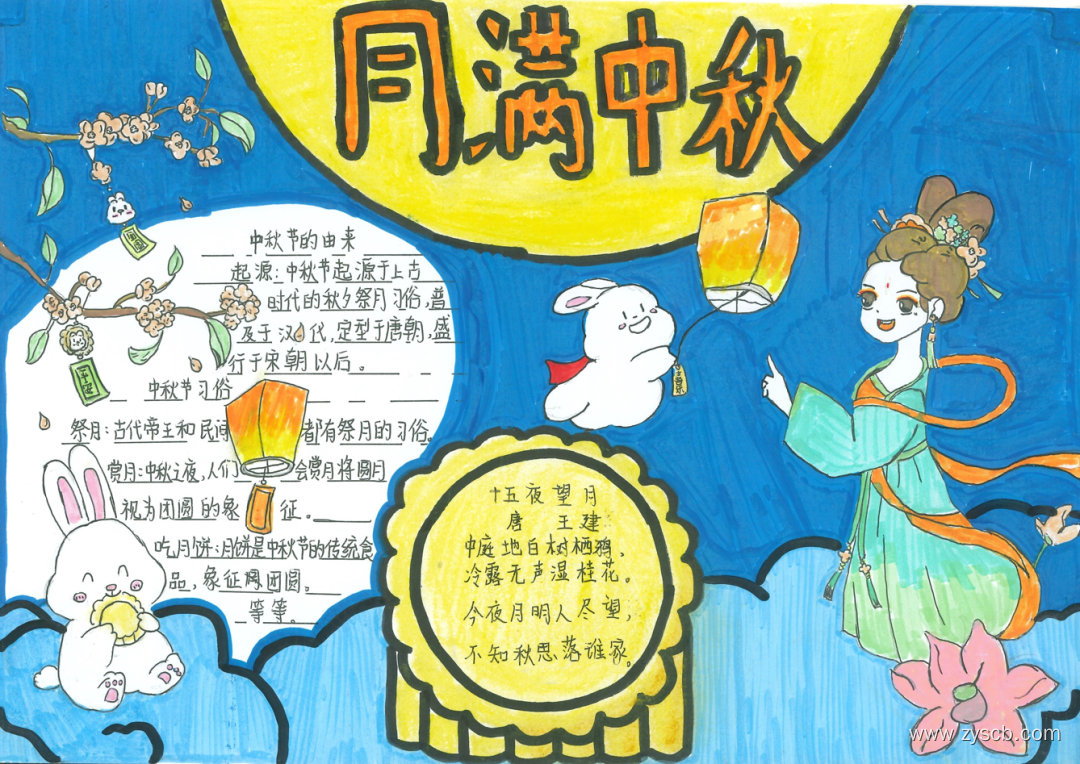 同满中秋
中秋节的由来
起源：中秋节起源于上古
时代的秋夕祭月习俗，普
及于汉代，定型于唐朝，盛
行于宋朝以后。
中秋节习俗
祭月：古代帝王和民间都有祭月的习俗。
赏月：中秋之夜，人们会赏月将圆月
视为团圆的象征。
吃月饼：月饼是中秋节的传统食
品，象征团圆。
等等。
十五夜望月
唐 王建
中庭地白树栖鸦，
冷露无声湿桂花。
今夜月明人尽望，
不知秋思落谁家。
www.zyscb.com